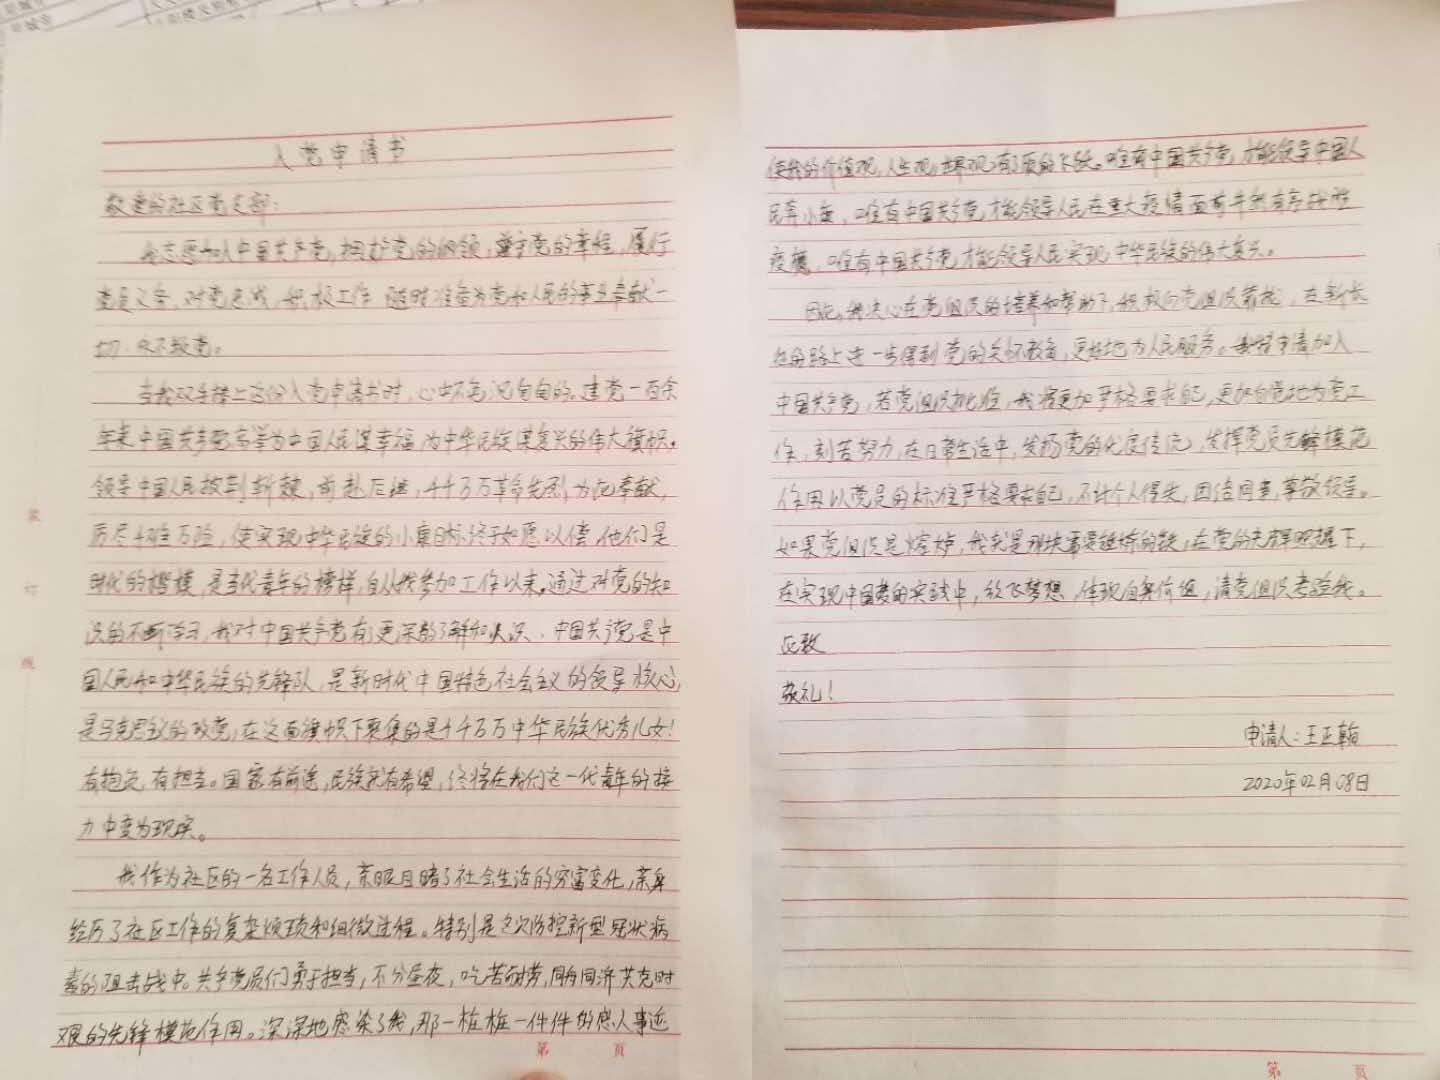 入党申请书
敬爱的社区党支部：
我志愿加入中国共产党，拥护党的纲领，遵守党的章程，履行
党员义务，对党忠诚，积极工作，随时准备为党和人民的事业奉献一
切，永不叛党。
当我双手捧上这份入党申请书时，心中不免沉甸甸的。建党一百余
年来中国共产党高举为中国人民谋幸福，为中华民族谋复兴的伟大旗帜。
领导中国人民披荆斩棘，前赴后继，千千万万革命先烈，为此奉献，
历尽千难万险，使实现中华民族的小康目标终于如愿以偿，他们是
时代的楷模，是当代青年的榜样，自从我参加工作以来，通过对党的知
识的不断学习，我对中国共产党有了更深的了解和认识、中国共产党是中
国人民和中华民族的先锋队，是新时代中国特色社会主义的领导核心，
是马克思主义的政党，在这面旗帜下聚集的是千千万万中华民族优秀儿女！
有抱负，有担当。国家有前途，民族就有希望，终将在我们这一代青年的接
力中变为现实。
我作为社区的一名工作人员，亲眼目睹了社会生活的穷富变化，亲身
经历了社区工作的复杂烦琐和细微过程。特别是这次防控新型冠状病
毒的阻击战中。共产党员们勇于担当，不分昼夜，吃苦耐劳，同舟同济共克时
艰的先锋模范作用。深深地感染了我，那一桩桩一件件的感人事迹
第 页
装
订
线
使我的价值观，人生观，世界观，有了质的飞跃。唯有中国共产党，才能领导中国人
民奔小康，唯有中国共产党才能领导人民在重大疫情面前井然有序战胜
疫魔，唯有中国共产党才能领导人民实现中华民族的伟大复兴。
因此，我决心在党组织的培养和帮助下，积极向党组织靠拢，在新长
征的路上进一步得到党的关怀教育，更好地为人民服务。我申请加入
中国共产党，若党组织批准，我将更加严格要求自己，更加自觉地为党工
作，刻苦努力，在日常生活中，发扬党的优良传统，发挥党员先锋模范
作用以党员的标准严格要求自己，不计个人得失，团结同事，尊敬领导。
如果党组织是熔炉，我就是那块需要锤炼的铁，在党的光辉照耀下，
在实现中国梦的实践中，放飞梦想，体现自身价值，请党组织考验我。
此致
敬礼！
申请人：王正翰
2020年02月08日
第 页